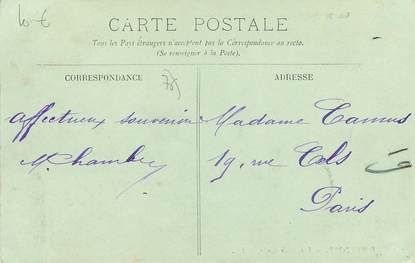 10-€
CARTE POSTALE
Tous les Pays étrangers n'acceptent pas la Correspondance au recto.
(Se renseigner à la Poste).
CORRESPONDANCE
ADRESSE
affectueux souvenir
M Chambey
Madame Camus
19, rue Cels
Paris